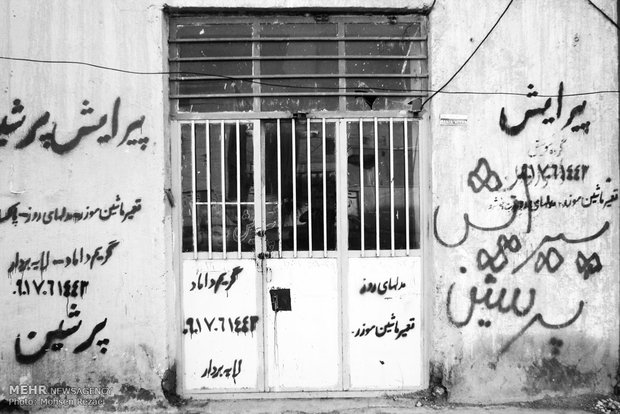 پیرایش پرشین
تعمیر ماشین موزر - مدلهای روز -
گریم داماد - لایه بردار
۰۹۱۷۰۶۱۴۴۲
پرشین
گریم داماد
۰۹۱۷۰۶۱۴۴۲
لایه بردار
مدلهای روز
تعمیر ماشین موزر
پیرایش
۰۹۱۷۰۶۱۴۴۲
تعمیر ماشین موزر، مدلهای روز
پرشین
MEHR NEWSAGENCY
Photo: Mohsen Rezaee